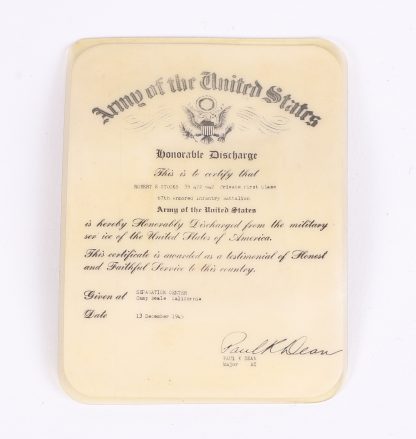 Army of the United States
Honorable Discharge
This is to certify that
ROBERT E Private First Class
67th Armored Infantry Battalion
Army of the United States
is hereby Honorably Discharged from the military
service of the United States of America.
This certificate is awarded as a testimonial of Honest
and Faithful Service to this country.
Given at SEPARATION CENTER
Camp Beale California
Date 13 December 1945
Paul K Dean
PAUL K DEAN
Major